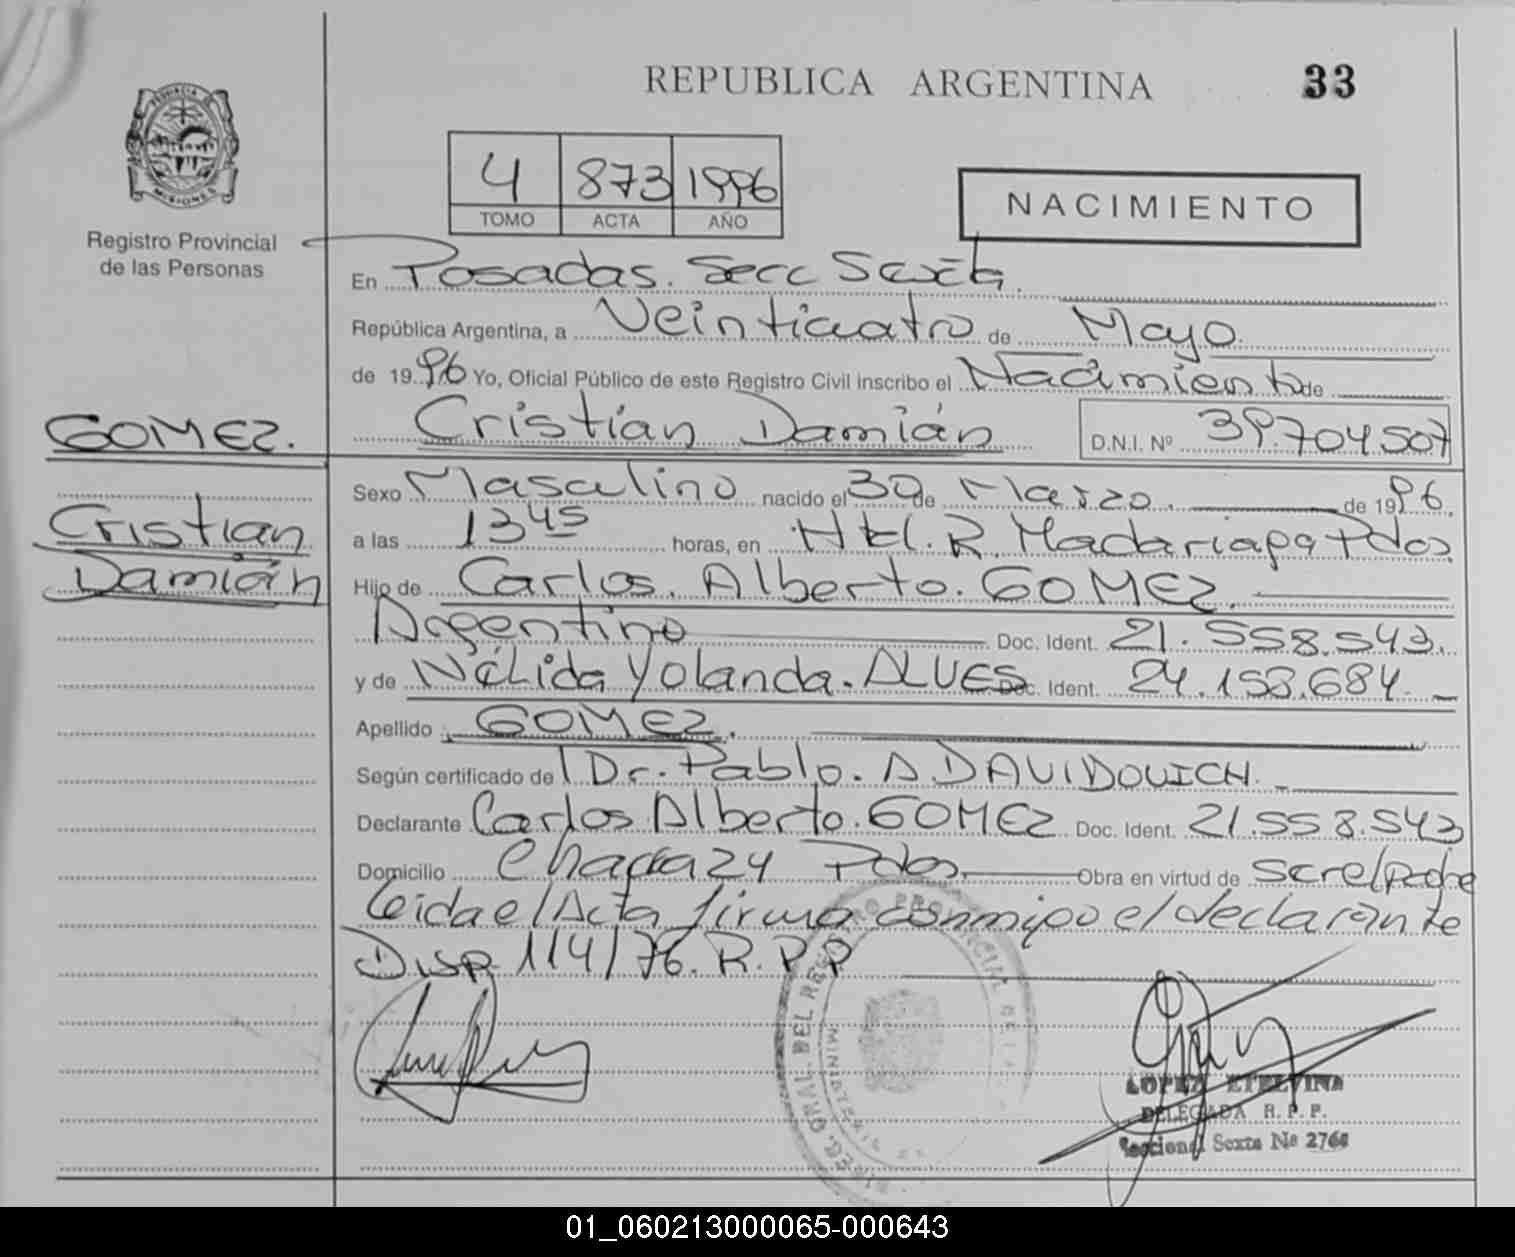 REPUBLICA ARGENTINA 33
PROVINCIA DE MISIONES
Registro Provincial
de las Personas
4 873 1996
TOMO ACTA AÑO
NACIMIENTO
En Posadas. Secc Sexta.
República Argentina, a Veinticuatro de Mayo.
de 1996 Yo, Oficial Público de este Registro Civil inscribo el Nacimiento de
Cristian Damián D.N.I. Nº 39.704.507
GOMEZ.
Cristian
Damián
Sexo Masculino nacido el 30 de Marzo. de 1996.
a las 13 45 horas, en Htl. R. Madariaga Pdas
Hijo de Carlos. Alberto. GOMEZ.
Argentino Doc. Ident. 21.558.543.
y de Nélida Yolanda. ALVES Doc. Ident. 24.153.684.
Apellido GOMEZ.
Según certificado de Dr. Pablo. A DAVIDOVICH.
Declarante Carlos Alberto. GOMEZ Doc. Ident. 21.558.543
Domicilio Chacra 24 Pdas. Obra en virtud de ser el padre
Leida el Acta firma conmigo el declarante
Disp. 114/76. R.P.P.
DIREC. GRAL. DEL REGISTRO PROVINCIAL DE LAS
LOPEZ ETELVINA
DELEGADA R. P. P.
Seccional Sexta Nº 2768
01_060213000065-000643